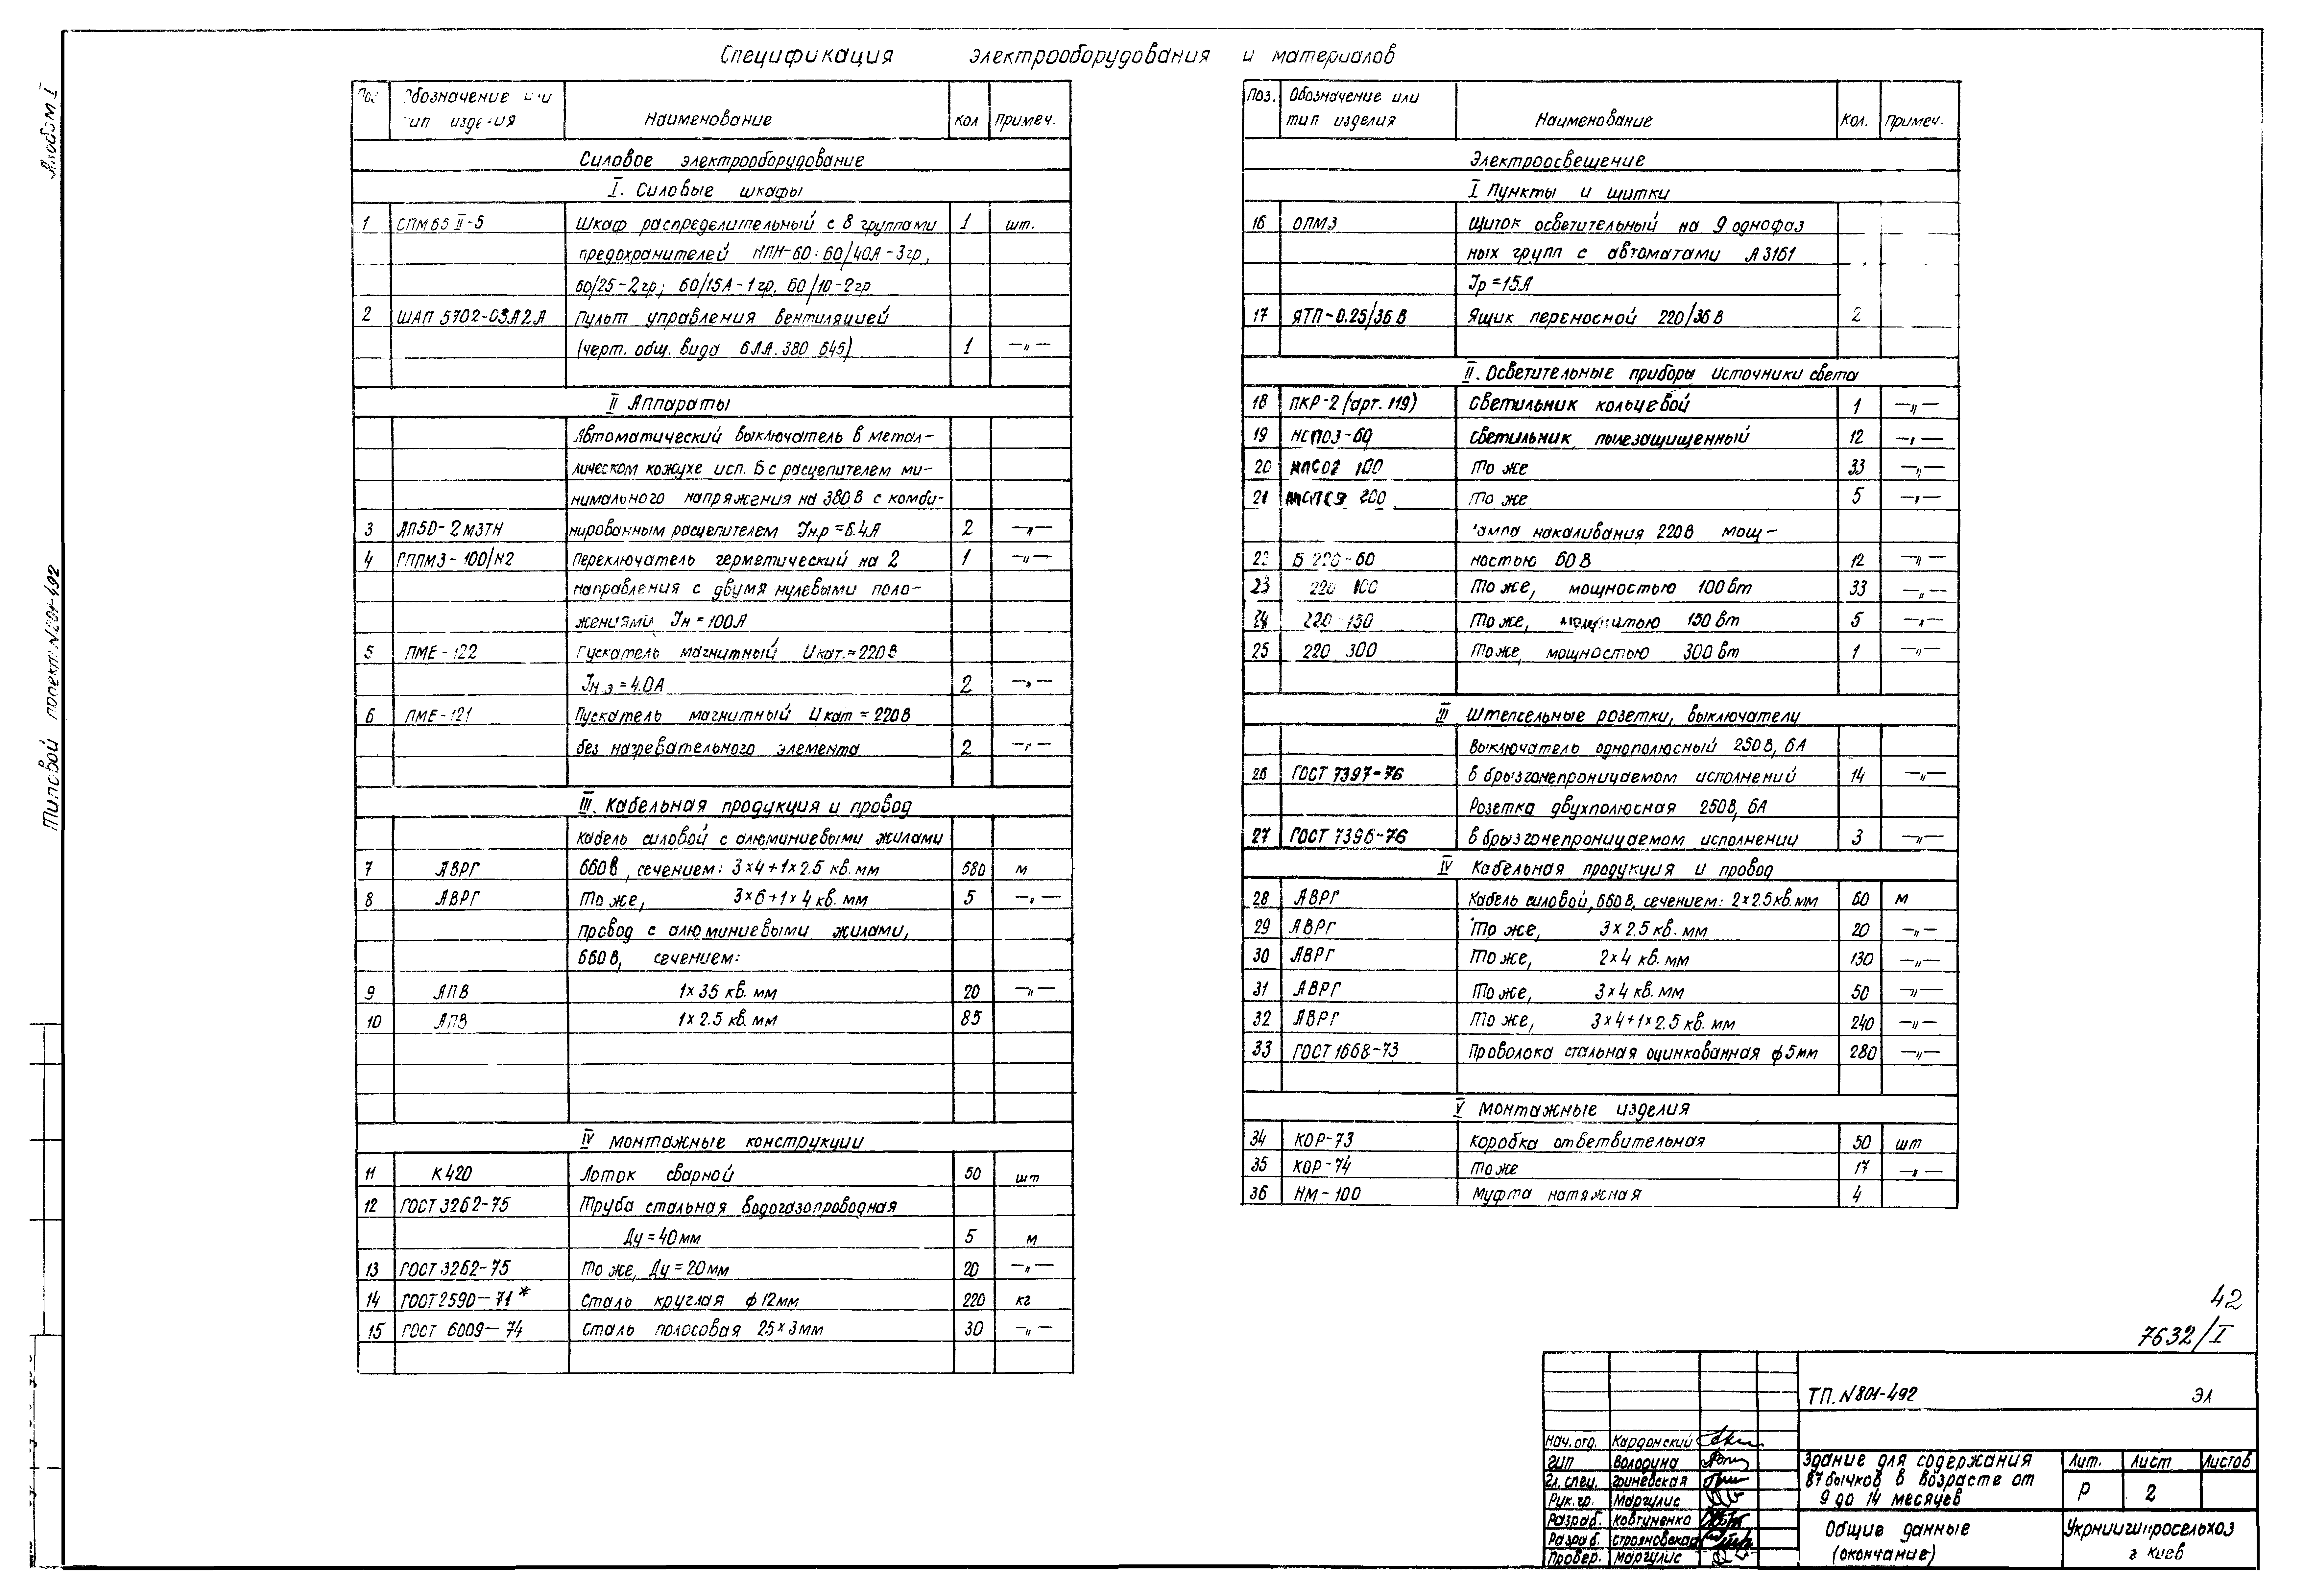 Альбом I
Типовой проект N801-492
Спецификация электрооборудования и материалов
Поз. Обозначение или тип изделия Наименование Кол Примеч.
Силовое электрооборудование
I. Силовые шкафы
1 СПМ65 II-5 Шкаф распределительный с 8 группами 1 шт.
предохранителей НПН-60: 60/40А-3гр,
60/25-2гр; 60/15А-1гр, 60/10-2гр
2 ШАП 5702-03А2А Пульт управления вентиляцией
(черт. общ. вида 6ЛА.380 645) 1 —"—
II Аппараты
Автоматический выключатель в метал-
лическом кожухе исп. Б с расцепителем ми-
нимального напряжения на 380В с комби-
3 АП50-2МЗТН нированным расцепителем Iн.р=6.4А 2 —"—
4 ГППМЗ-100/Н2 Переключатель герметический на 2 1 —"—
направления с двумя нулевыми поло-
жениями Iн=100А
5 ПМЕ-122 Пускатель магнитный Uкат.=220В
Iн.э=4.0А 2 —"—
6 ПМЕ-121 Пускатель магнитный Uкат=220В
без нагревательного элемента 2 —"—
III. Кабельная продукция и провод
Кабель силовой с алюминиевыми жилами
7 АВРГ 660В, сечением: 3×4+1×2.5 кв.мм 680 м
8 АВРГ То же, 3×6+1×4 кв.мм 5 —"—
Провод с алюминиевыми жилами,
660В, сечением:
9 АПВ 1×35 кв.мм 20 —"—
10 АПВ 1×2.5 кв.мм 85
IV Монтажные конструкции
11 К420 Лоток сварной 50 шт
12 ГОСТ 3262-75 Труба стальная водогазопроводная
Ду=40мм 5 м
13 ГОСТ 3262-75 То же, Ду=20мм 20 —"—
14 ГОСТ 2590-71* Сталь круглая ф12мм 220 кг
15 ГОСТ 6009-74 Сталь полосовая 25×3мм 30 —"—
Поз. Обозначение или тип изделия Наименование Кол. Примеч.
Электроосвещение
I Пункты и щитки
16 ОПМ3 Щиток осветительный на 9 однофаз
ных групп с автоматами А3161
Iр=15А
17 ЯТП-0.25/36В Ящик переносной 220/36В 2
II. Осветительные приборы источники света
18 ПКР-2 (арт. 119) светильник кольцевой 1 —"—
19 НСП03-60 светильник пылезащищенный 12 —"—
20 100 То же 33 —"—
21 200 То же 5 —"—
накаливания 220В мощ-
22 Б 220-60 ностью 60В 12 —"—
23 220 100 То же, мощностью 100вт 33 —"—
24 220-150 То же, мощностью 150вт 5 —"—
25 220 300 То же, мощностью 300вт 1 —"—
III Штепсельные розетки, выключатели
Выключатель однополюсный 250В, 6А
26 ГОСТ 7397-76 в брызгонепроницаемом исполнений 14 —"—
Розетка двухполюсная 250В, 6А
27 ГОСТ 7396-76 в брызгонепроницаемом исполнении 3 —"—
IV Кабельная продукция и провод
28 АВРГ Кабель силовой, 660В, сечением: 2×2.5кв.мм 60 м
29 АВРГ То же, 3×2.5 кв.мм 20 —"—
30 АВРГ То же, 2×4 кв.мм 130 —"—
31 АВРГ То же, 3×4 кв.мм 50 —"—
32 АВРГ То же, 3×4+1×2.5 кв.мм 240 —"—
33 ГОСТ 1668-73 Проволока стальная оцинкованная ф5мм 280 —"—
V Монтажные изделия
34 КОР-73 Коробка ответвительная 50 шт
35 КОР-74 То же 17 —"—
36 НМ-100 Муфта натяжная 4
42
7632/I
ТП.N801-492 ЭЛ
Нач.отд. Кардонский
ГИП Володина
Гл.спец. Гриневская
Рук.гр. Маргулис
Разраб. Ковтуненко
Разраб. Строяновская
Провер. Маргулис
Здание для содержания
87 бычков в возрасте от
9 до 14 месяцев
Лит. Лист Листов
Р 2
Общие данные
(окончание)
Укрниигипросельхоз
г Киев